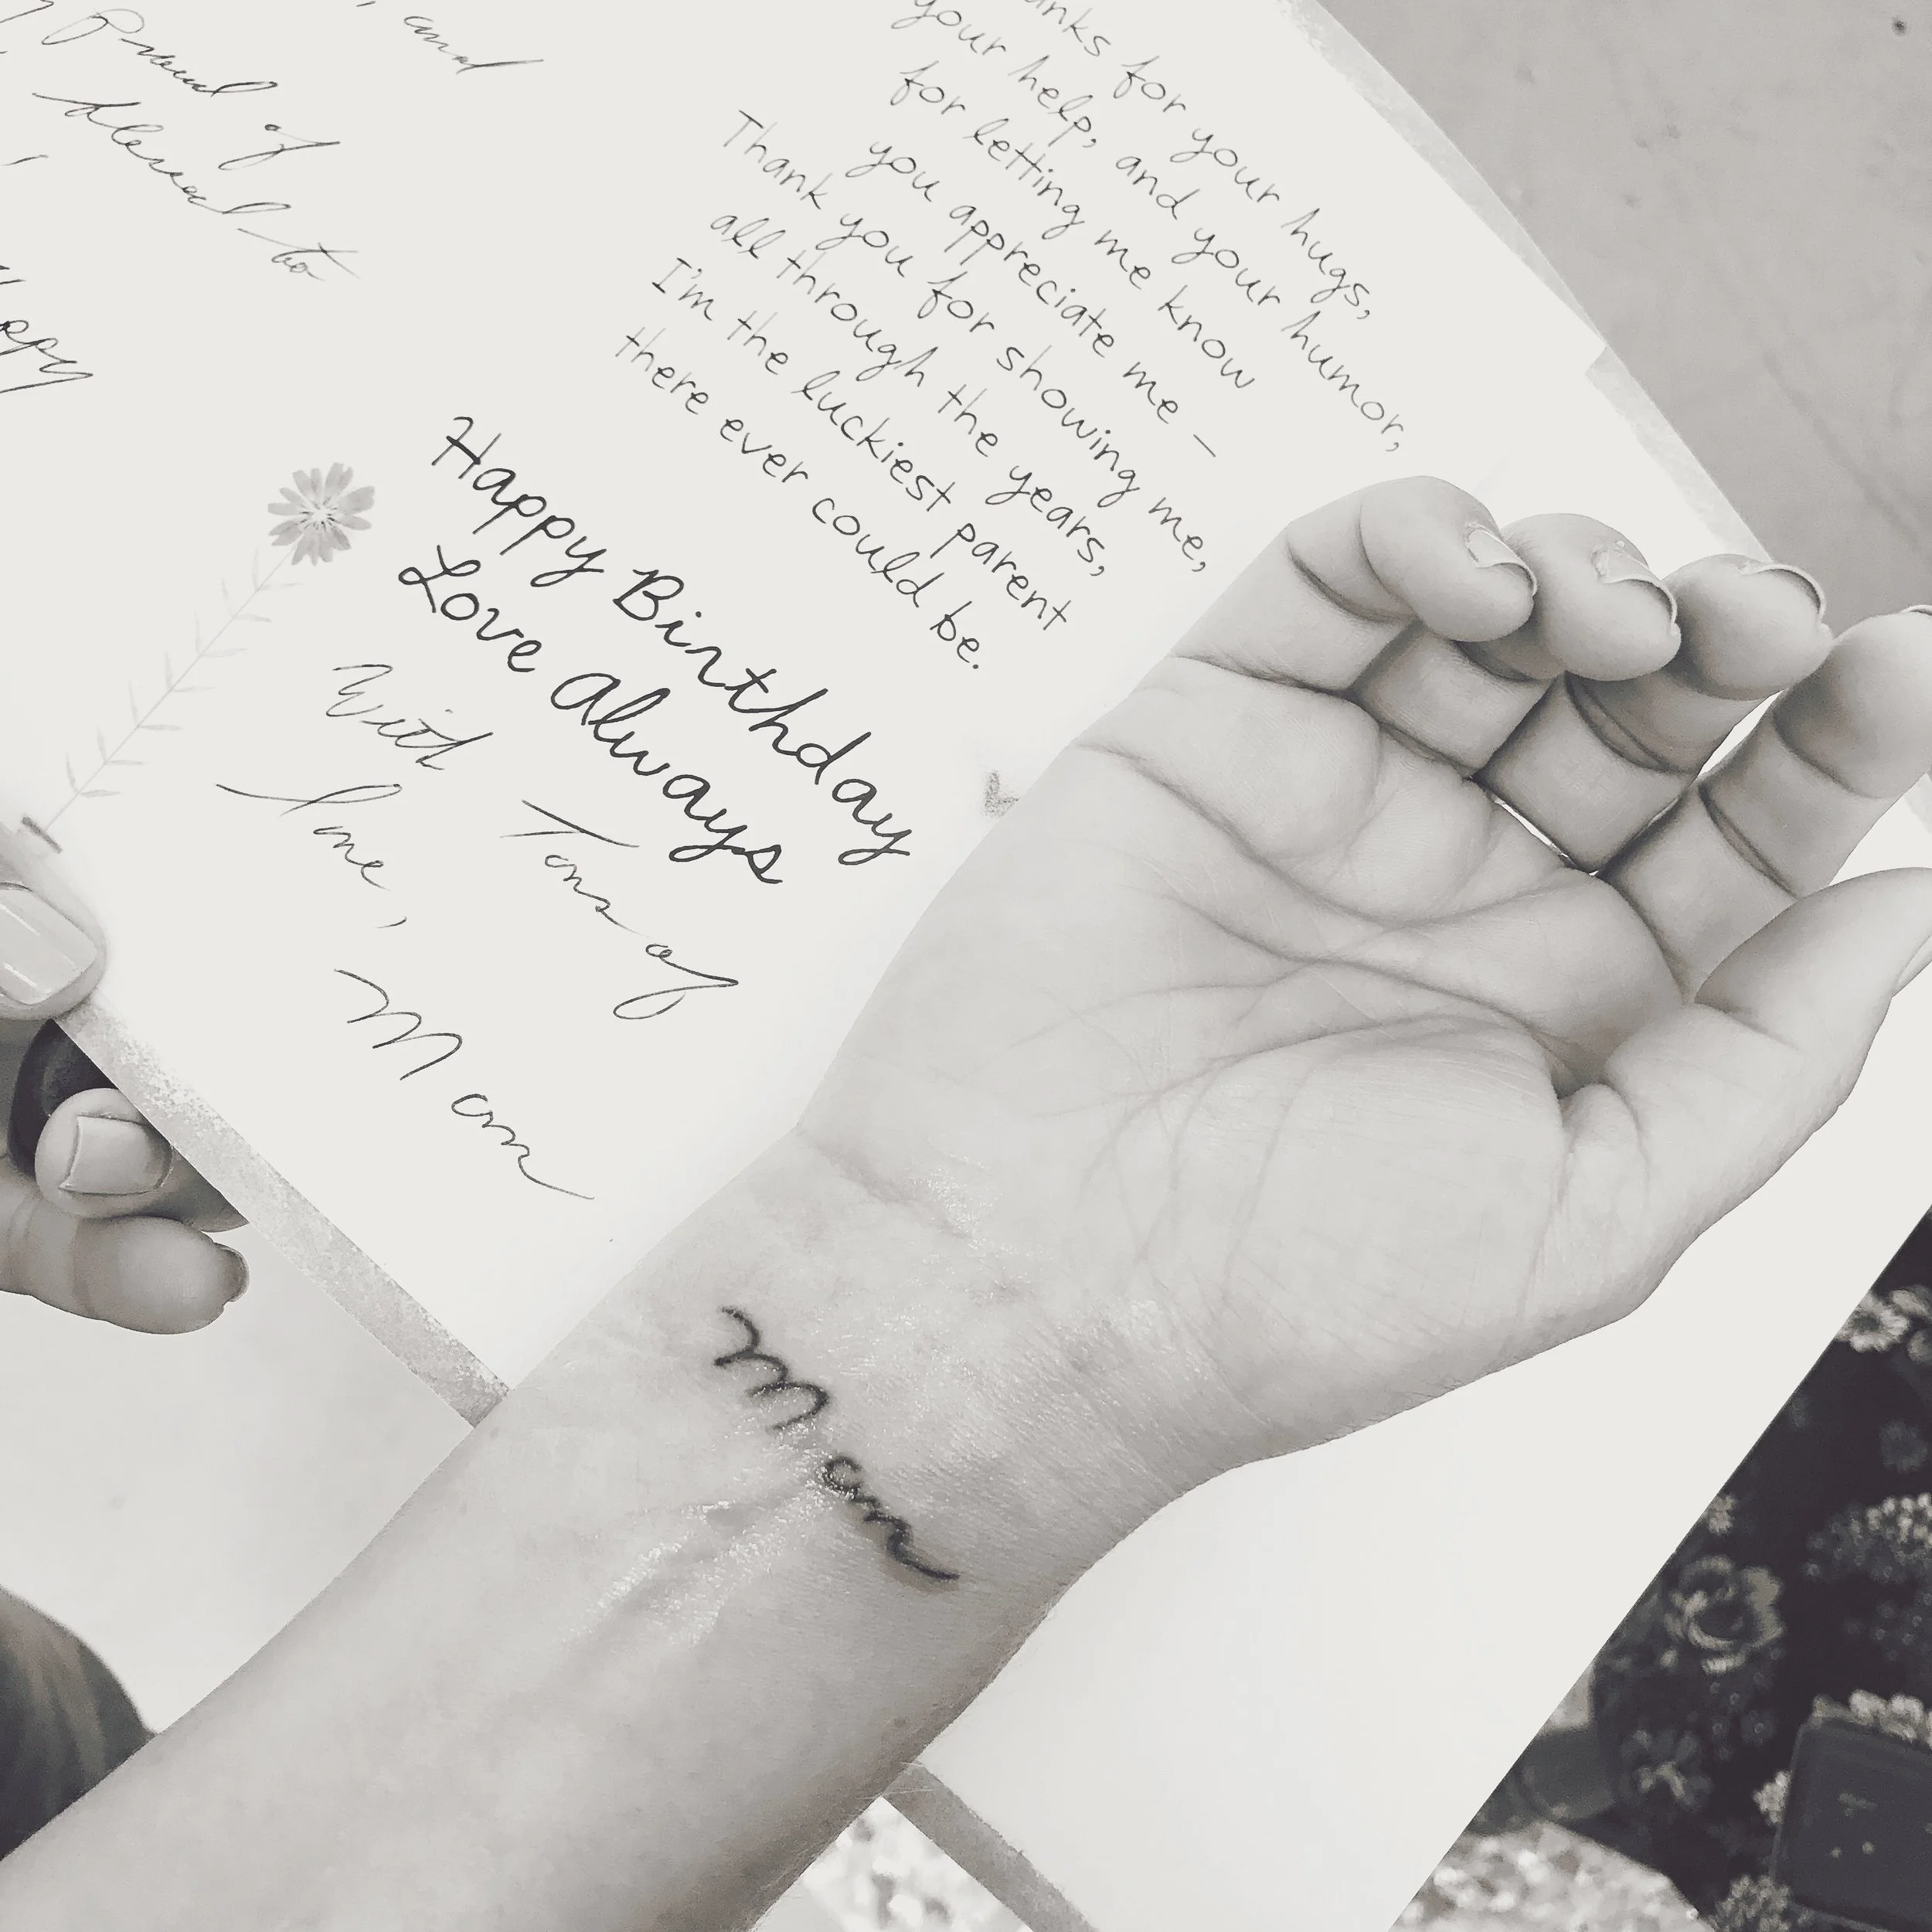 , and
Proud of
blessed to
anks for your hugs,
your help, and your humor,
for letting me know
you appreciate me –
Thank you for showing me,
all through the years,
I'm the luckiest parent
there ever could be.
Happy Birthday
Love Always
With Tons of
love,
Mom
Mom